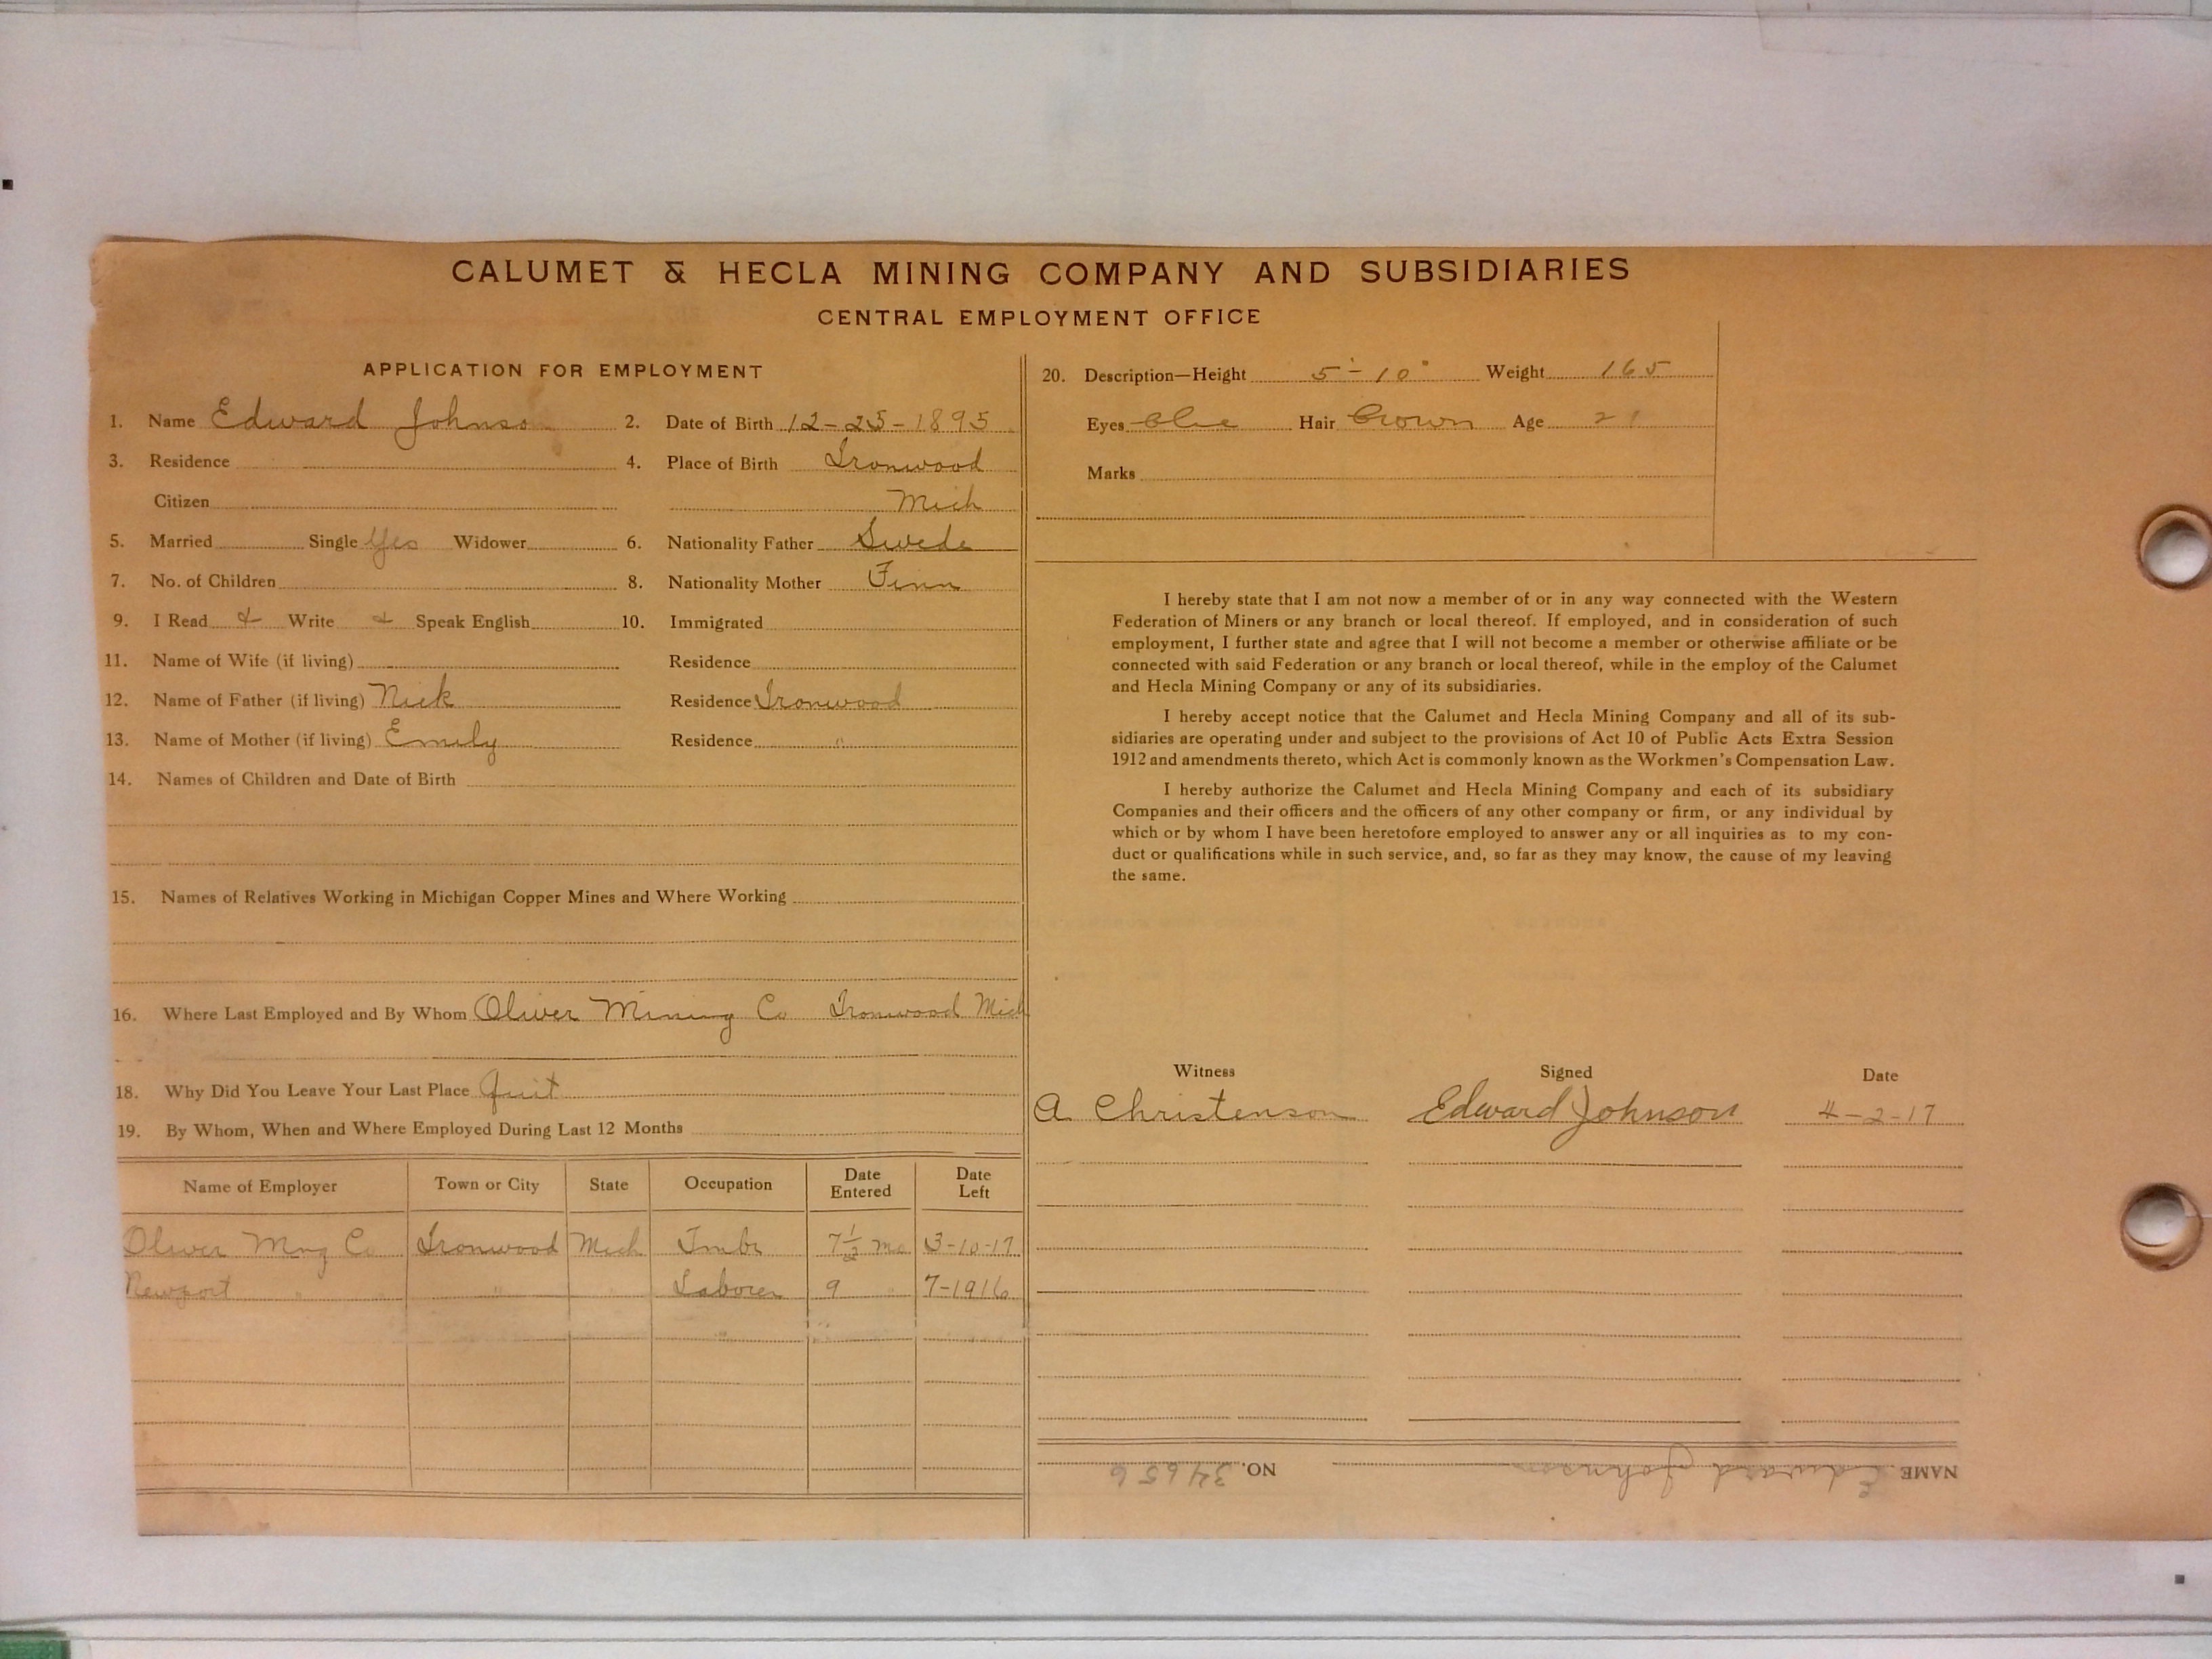 CALUMET & HECLA MINING COMPANY AND SUBSIDIARIES
CENTRAL EMPLOYMENT OFFICE
APPLICATION FOR EMPLOYMENT
1. Name Edward Johnso 2. Date of Birth 12-25-1895
3. Residence 4. Place of Birth Ironwood
Citizen Mich
5. Married Single Yes Widower 6. Nationality Father Swede
7. No. of Children 8. Nationality Mother Finn
9. I Read & Write & Speak English 10. Immigrated
11. Name of Wife (if living) Residence
12. Name of Father (if living) Nick Residence Ironwood
13. Name of Mother (if living) Emily Residence "
14. Names of Children and Date of Birth
15. Names of Relatives Working in Michigan Copper Mines and Where Working
16. Where Last Employed and By Whom Oliver Mining Co Ironwood Mich
18. Why Did You Leave Your Last Place Quit
19. By Whom, When and Where Employed During Last 12 Months
Name of Employer Town or City State Occupation Date Entered Date Left
Oliver Mng Co Ironwood Mich Tmbr 7 1/2 mo 3-10-17
Newport " " " Laborer 9 " 7-1916
20. Description—Height 5'-10" Weight 165
Eyes Blue Hair Brown Age 21
Marks
I hereby state that I am not now a member of or in any way connected with the Western
Federation of Miners or any branch or local thereof. If employed, and in consideration of such
employment, I further state and agree that I will not become a member or otherwise affiliate or be
connected with said Federation or any branch or local thereof, while in the employ of the Calumet
and Hecla Mining Company or any of its subsidiaries.
I hereby accept notice that the Calumet and Hecla Mining Company and all of its sub-
sidiaries are operating under and subject to the provisions of Act 10 of Public Acts Extra Session
1912 and amendments thereto, which Act is commonly known as the Workmen's Compensation Law.
I hereby authorize the Calumet and Hecla Mining Company and each of its subsidiary
Companies and their officers and the officers of any other company or firm, or any individual by
which or by whom I have been heretofore employed to answer any or all inquiries as to my con-
duct or qualifications while in such service, and, so far as they may know, the cause of my leaving
the same.
Witness Signed Date
A Christenson Edward Johnson 4-2-17
NAME Edward Johnson NO. 34656